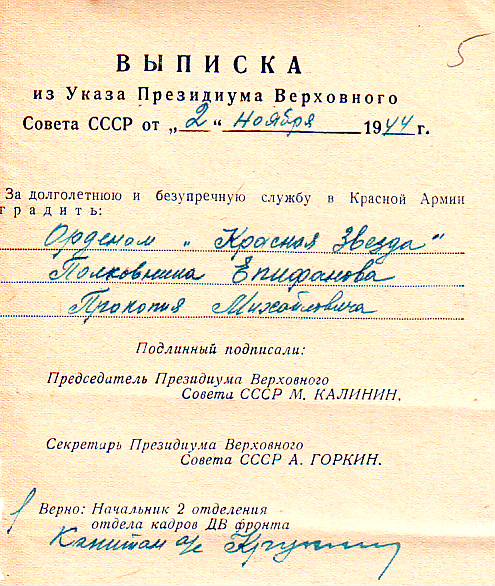 5
ВЫПИСКА
из Указа Президиума Верховного
Совета СССР от „2“ ноября 1944 г.
За долголетнюю и безупречную службу в Красной Армии
градить:
Орденом „Красная Звезда“
Полковника Епифанова
Прокопия Михайловича
Подлинный подписали:
Председатель Президиума Верховного
Совета СССР М. КАЛИНИН.
Секретарь Президиума Верховного
Совета СССР А. ГОРКИН.
Верно: Начальник 2 отделения
отдела кадров ДВ фронта
Капитан а/с